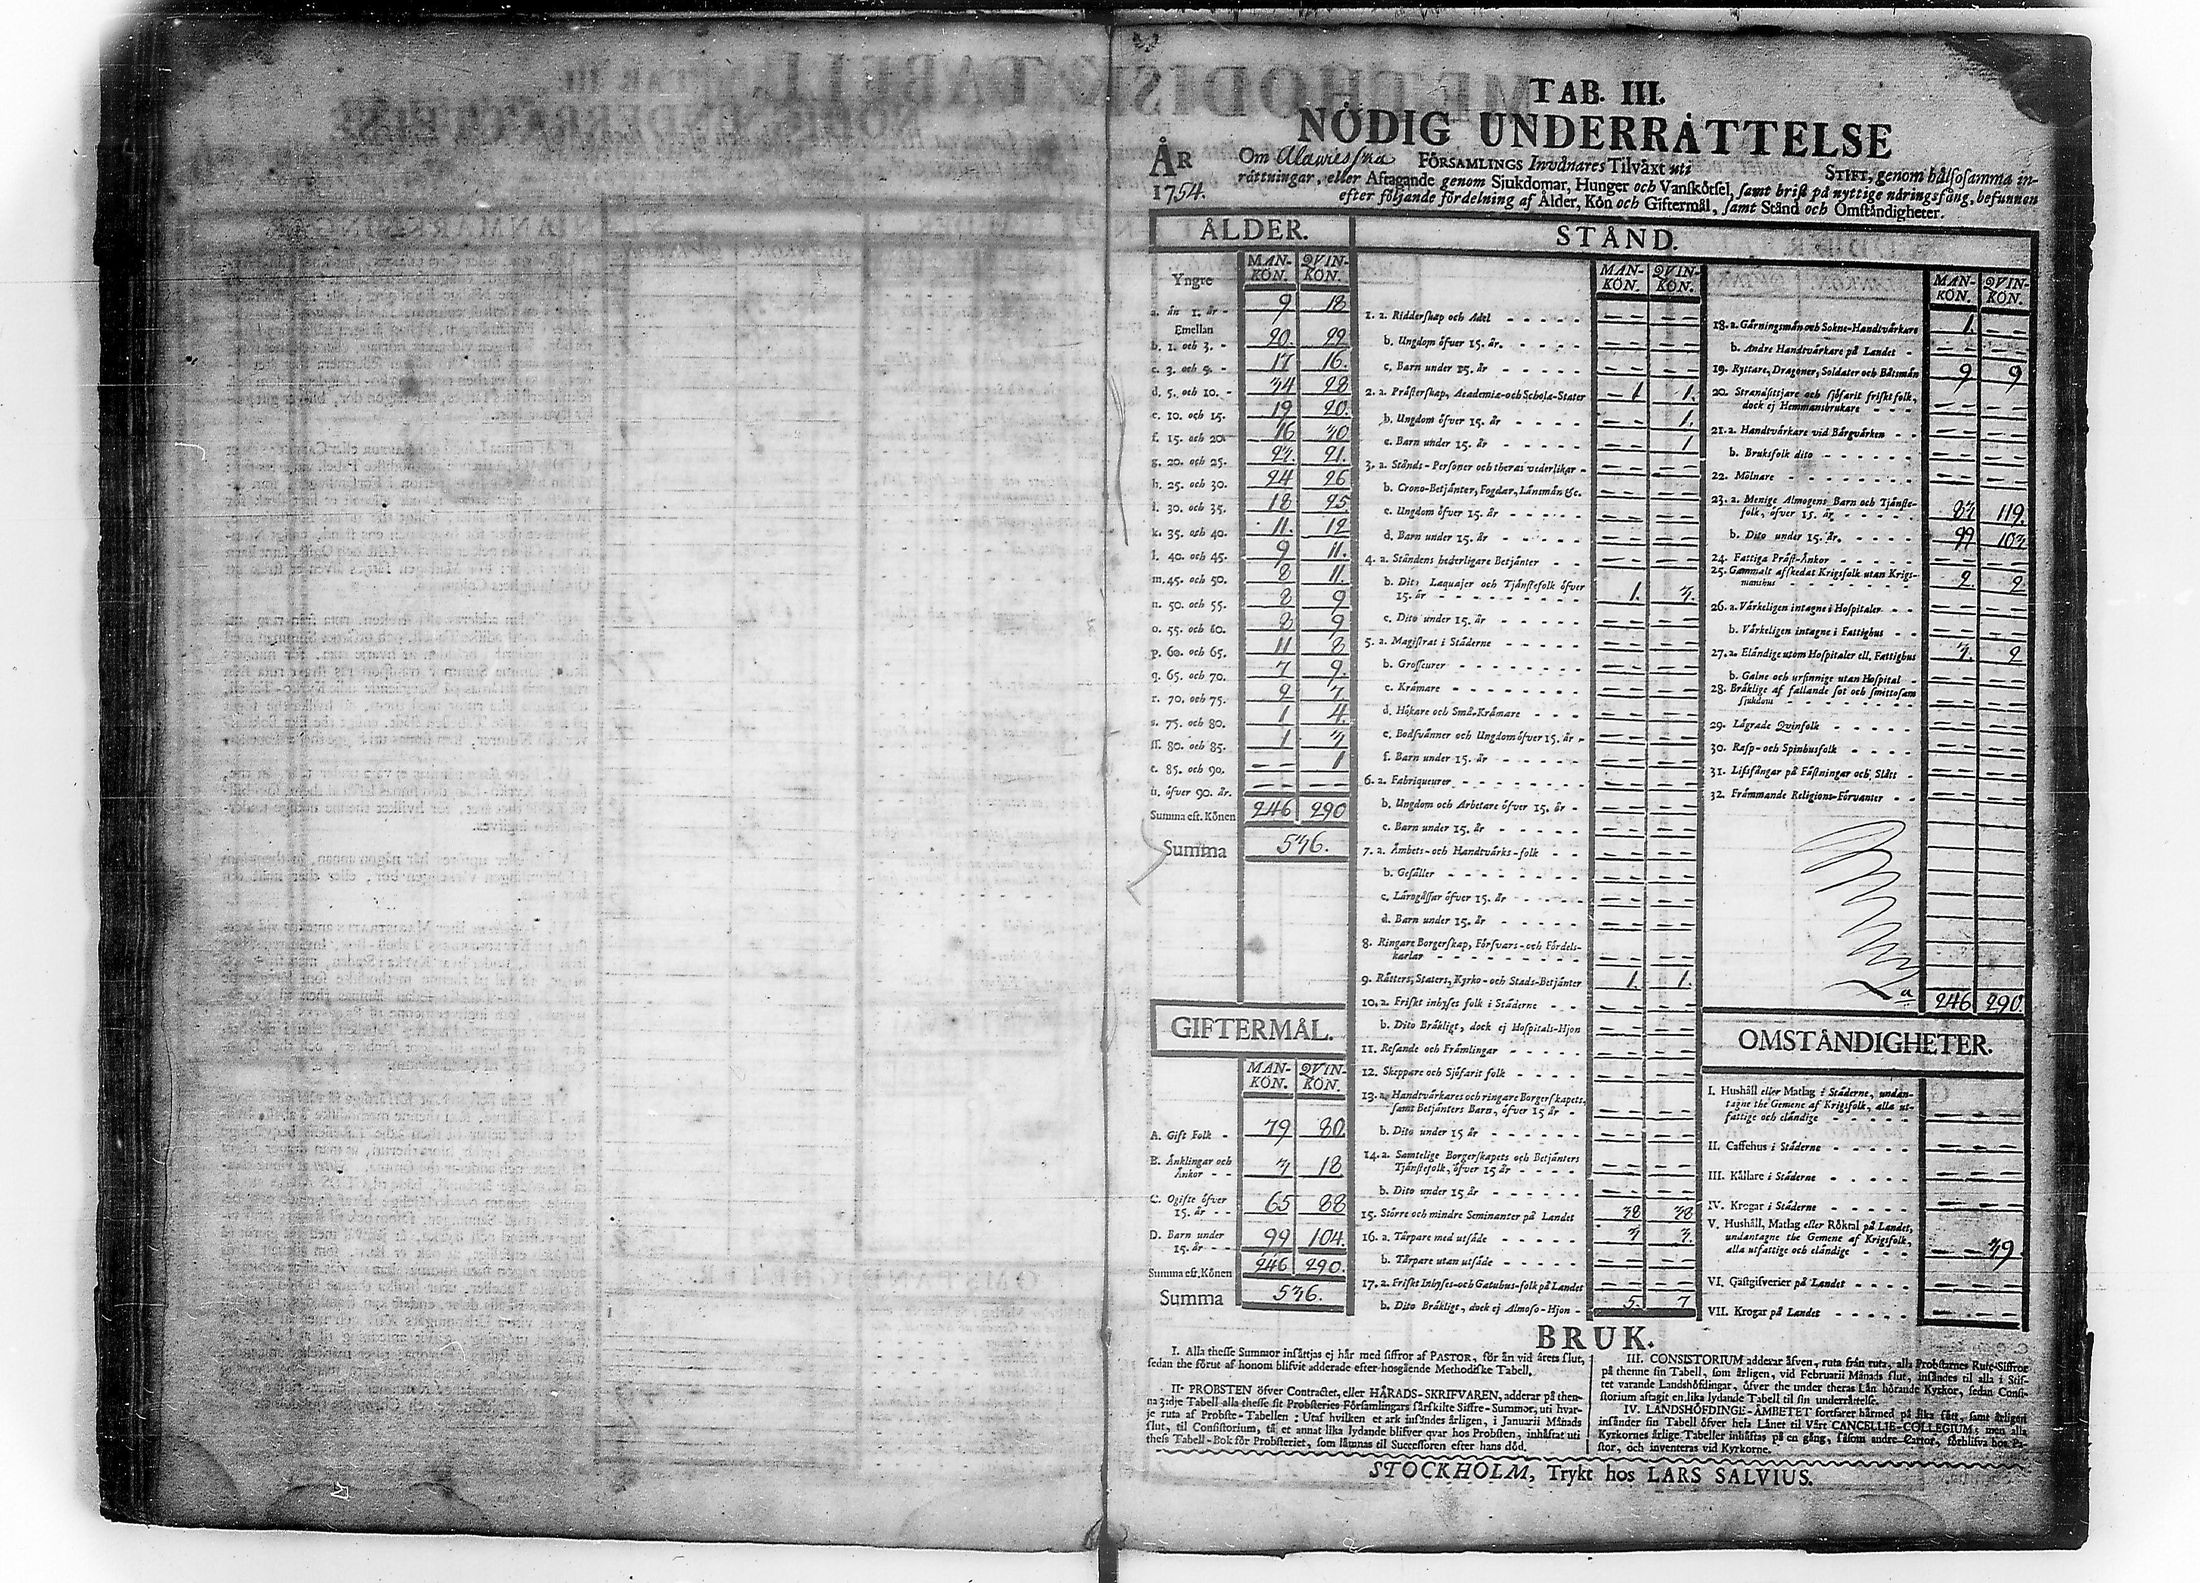 TAB. III.
NÖDIG UNDERRÄTTELSE
ÅR 1754.
Om FÖRSAMLINGS Invånares Tilväxt uti STIFT, genom hälsosamma in-
rättningar, eller Aftagande genom Sjukdomar, Hunger och Vanskötsel, samt brist på nyttige näringsfång, befunnen
efter följande fördelning af Ålder, Kön och Giftermål, samt Stånd och Omständigheter.
ÅLDER.
MAN-KÖN. QVIN-KÖN.
Yngre
a. än 1. år - 9 18
Emellan
b. 1. och 3. - 20. 22
c. 3. och 5. - 17 16.
d. 5. och 10. - 34 28
e. 10. och 15. 19 20.
f. 15. och 20. 16 30
g. 20. och 25. 23. 21.
h. 25. och 30. 24 26
i. 30. och 35. 18 25.
k. 35. och 40. 11. 12
l. 40. och 45. 9 11.
m. 45. och 50. 8 11.
n. 50. och 55. 8 9
o. 55. och 60. 8 9
p. 60. och 65. 11 8
q. 65. och 70. 7 9.
r. 70. och 75. 2 7
s. 75. och 80. 1 4.
ſſ. 80. och 85. 1 3
t. 85. och 90. 1
u. öfver 90. år. — —
Summa eft. Könen 246 290
Summa 536.
GIFTERMÅL.
MAN-KÖN. QVIN-KÖN.
A. Gift Folk - 79 80.
B. Änklingar och
Änkor - - 3 18
C. Ogifte öfver
15. år - - 65 88
D. Barn under
15. år - - 99 104.
Summa eft. Könen 246 290.
Summa 536.
STÅND.
MAN-KÖN. QVIN-KÖN.
1. a. Ridderskap och Adel - - — —
b. Ungdom öfver 15. år. - - — —
c. Barn under 15. år - - — —
2. a. Prästerskap, Academiæ-och Scholæ-Stater 1 1.
b. Ungdom öfver 15. år - - — 1.
c. Barn under 15. år - - — 1
3. a. Stånds-Personer och theras vederlikar - — —
b. Crono-Betjänter, Fogdar, Länsmän &c. — —
c. Ungdom öfver 15. år - - — —
d. Barn under 15. år - - — —
4. a. Ståndens hederligare Betjänter - - — —
b. Dito Laquajer och Tjänstefolk öfver
15. år - - 1. 3.
c. Dito under 15. år - - — —
5. a. Magistrat i Städerne - - — —
b. Grosseurer - - — —
c. Krämare - - — —
d. Hökare och Små-Krämare - - — —
e. Bodsvänner och Ungdom öfver 15. år - — —
f. Barn under 15. år - - — —
6. a. Fabriqueurer - - — —
b. Ungdom och Arbetare öfver 15. år - — —
c. Barn under 15. år - - — —
7. a. Ämbets-och Handtvärks-folk - - — —
b. Gesäller - - — —
c. Lärogåssar öfver 15. år - - — —
d. Barn under 15. år - - — —
8. Ringare Borgerskap, Försvars-och Fördels-
karlar - - — —
9. Rätters, Staters, Kyrko-och Stads-Betjänter 1. 1.
10. a. Friskt inhyses folk i Städerne - - — —
b. Dito Bräkligt, dock ej Hospitals-Hjon — —
11. Resande och Främlingar - - — —
12. Skeppare och Sjöfarit folk - - — —
13. a. Handtvärkares och ringare Borgerskapets,
samt Betjänters Barn, öfver 15 år - — —
b. Dito under 15 år - - — —
14. a. Samtelige Borgerskapets och Betjänters
Tjänstefolk, öfver 15 år - - — —
b. Dito under 15 år - - — —
15. Större och mindre Seminanter på Landet 38 38
16. a. Tärpare med utsäde - - 3 3.
b. Tärpare utan utsäde - - — —
17. a. Friskt Inhyses-och Gatuhus-folk på Landet — —
b. Dito Bräkligt, dock ej Almoso-Hjon - 5. 7
MAN-KÖN. QVIN-KÖN.
18. a. Gärningsmän och Sokne-Handtvärkare 1. —
b. Andre Handtvärkare på Landet - — —
19. Ryttare, Dragoner, Soldater och Båtsmän 9 9
20. Strandsittjare och sjöfarit friskt folk,
dock ej Hemmansbrukare - - — —
21. a. Handtvärkare vid Bärgvärken - - — —
b. Bruksfolk dito - - — —
22. Mölnare - - — —
23. a. Menige Allmogens Barn och Tjänste-
folk, öfver 15. år - - 83 119.
b. Dito under 15. år. - - 99 103
24. Fattiga Präst-Änkor - - — —
25. Gammalt afskedat Krigsfolk utan Krigs-
manshus - - 2 2
26. a. Värkeligen intagne i Hospitaler - - — —
b. Värkeligen intagne i Fattighus - - — —
27. a. Eländige utom Hospitaler ell. Fattighus 3. 2
b. Galne och ursinnige utan Hospital - — —
28. Bräklige af fallande sot och smittosam
sjukdom - - — —
29. Lägrade Qvinfolk - - — —
30. Rasp-och Spinhusfolk - - — —
31. Lifsfångar på Fästningar och Slått - — —
32. Främmande Religions-Förvanter - - — —
246 290.
OMSTÄNDIGHETER.
I. Hushåll eller Matlag i Städerne, undan-
tagne the Gemene af Krigsfolk, alla ut-
fattige och eländige - - — —
II. Caffehus i Städerne - - — —
III. Källare i Städerne - - — —
IV. Krogar i Städerne - - — —
V. Hushåll, Matlag eller Röktal på Landet,
undantagne the Gemene af Krigsfolk,
alla utfattige och eländige - - — 39
VI. Gästgifverier på Landet - - — —
VII. Krogar på Landet - - — —
BRUK.
I. Alla thesse Summor insättjas ej här med siffror af PASTOR, för än vid årets slut,
sedan the förut af honom blifvit adderade efter hosgående Methodiske Tabell.
II. PROBSTEN öfver Contractet, eller HÄRADS-SKRIFVAREN, adderar på then-
na 3:dje Tabell alla thesse sit Probsteries Församlingars särskilte Siffre-Summor, uti hvar-
je ruta af Probste-Tabellen: Utaf hvilken et ark insändes årligen, i Januarii Månads
slut, til Consistorium, tå et annat lika lydande blifver qvar hos Probsten, inhäftat uti
thess Tabell-Bok för Probsteriet, som lämnas til Successoren efter hans död.
III. CONSISTORIUM adderar äfven, ruta från ruta, alla Probstarnes Rute-Siffror
på thenne sin Tabell, som årligen, vid Februarii Månads slut, insändes til alla i Stif-
tet varande Landshöfdingar, öfver the under theras Län hörande Kyrkor, sedan Consi-
storium aftagit en lika lydande Tabell til sin underrättelse.
IV. LANDSHÖFDINGE-ÄMBETET fortfarer härmed på lika sätt, samt årligen
insänder sin Tabell öfver hela Länet til Vårt CANCELLIE-COLLEGIUM; men alla
Kyrkornes årlige Tabeller inhäftas på en gång, såsom andre Cartor, förblifva hos Pa-
stor, och inventeras vid Kyrkorne.
STOCKHOLM, Trykt hos LARS SALVIUS.